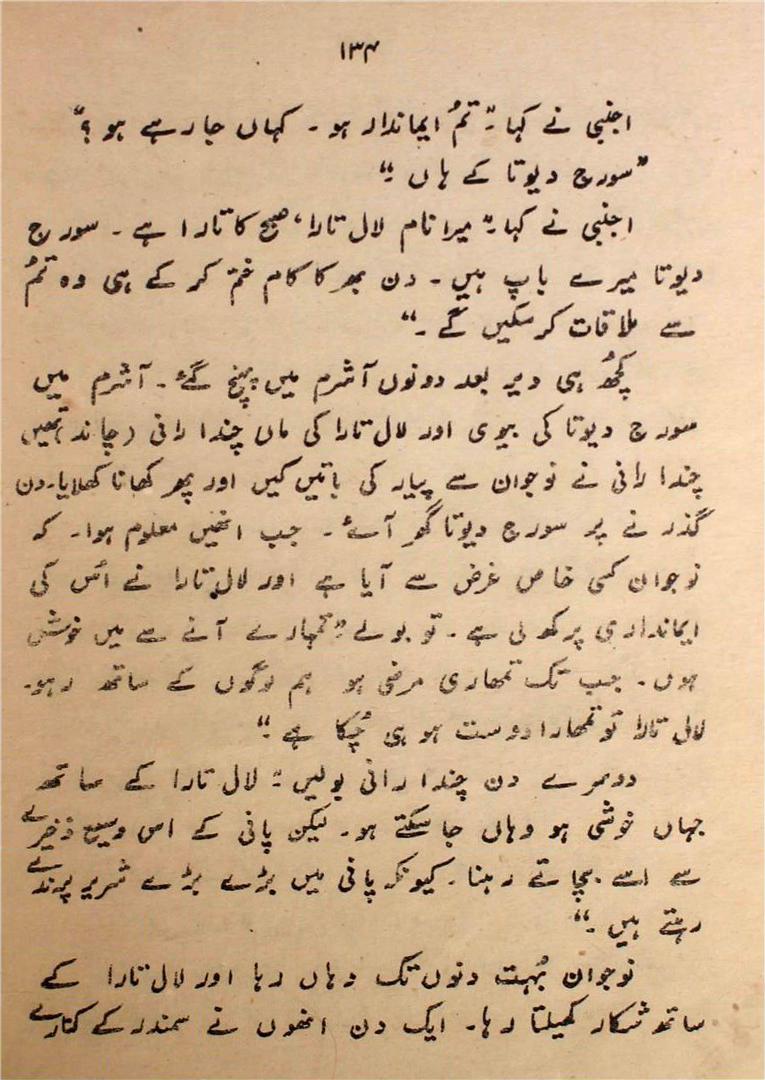 ۱۳۴
اجنبی نے کہا۔ "تمُ ایماندار ہو۔ کہاں جا رہے ہو؟"
"سورج دیوتا کے ہاں۔"
اجنبی نے کہا۔ "میرا نام لال تارا، صبح کا تارا ہے۔ سورج
دیوتا میرے باپ ہیں۔ دن بھر کا کام ختم کر کے ہی وہ تمُ
سے ملاقات کر سکیں گے۔"
کچھُ ہی دیر بعد دونوں آشرم میں پہنچ گئے۔ آشرم میں
سورج دیوتا کی بیوی اور لال تارا کی ماں چندا رانی (چاند) تھیں
چندا رانی نے نوجوان سے پیار کی باتیں کیں اور پھر کھانا کھلایا۔ دن
گذرنے پر سورج دیوتا گھر آئے۔ جب انھیں معلوم ہوا۔ کہ
نوجوان کسی خاص غرض سے آیا ہے اور لال تارا نے اُس کی
ایمانداری پرکھ لی ہے۔ تو بولے۔ "تمہارے آنے سے میں خوش
ہوں۔ جب تک تمھاری مرضی ہو ہم لوگوں کے ساتھ رہو۔
لال تارا تو تمھارا دوست ہو ہی چُکا ہے۔"
دوسرے دن چندا رانی بولیں۔ "لال تارا کے ساتھ
جہاں خوشی ہو وہاں جا سکتے ہو۔ لیکن پانی کے اس وسیع ذخیرے
سے اسے بچاتے رہنا۔ کیونکہ پانی میں بڑے بڑے شریر پرندے
رہتے ہیں۔"
نوجوان بُہت دنوں تک وہاں رہا اور لال تارا کے
ساتھ شکار کھیلتا رہا۔ ایک دن انھوں نے سمندر کے کنارے